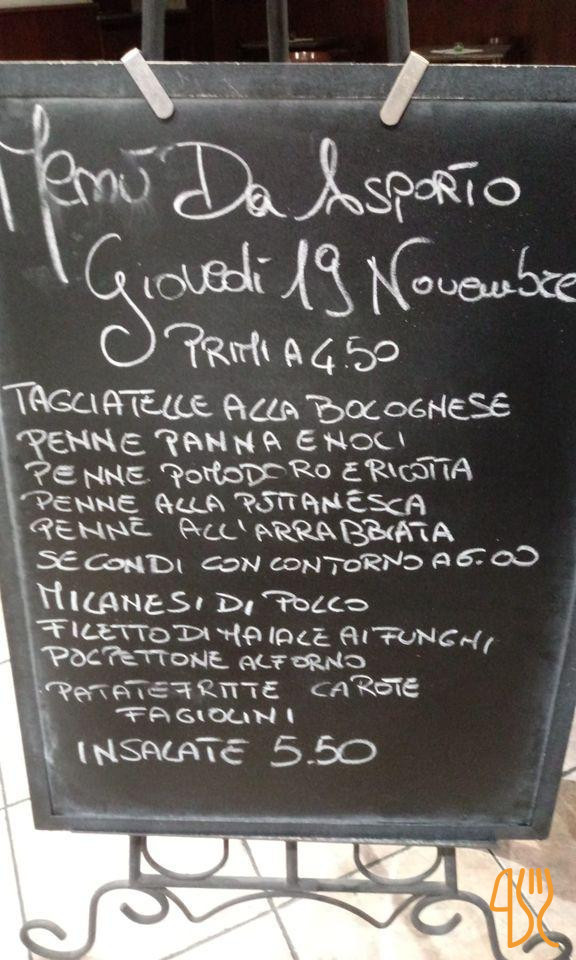 Menù Da Asporto
Giovedì 19 Novembre
PRIMI A 4.50
TAGLIATELLE ALLA BOLOGNESE
PENNE PANNA E NOCI
PENNE POMODORO E RICOTTA
PENNE ALLA PUTTANESCA
PENNE ALL'ARRABBIATA
SECONDI CON CONTORNO A 6.00
MILANESI DI POLLO
FILETTO DI MAIALE AI FUNGHI
POLPETTONE AL FORNO
PATATE FRITTE CAROTE
FAGIOLINI
INSALATE 5.50